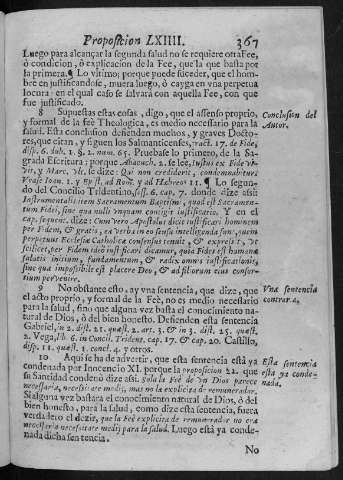 Proposicion LXIIII. 367
Luego para alcançar la segunda salud no se requiere otra Fee,
ò condicion, ò explicacion de la Fee, que la que basta por
la primera. ¶ Lo vltimo; porque puede suceder, que el hom-
bre en justificandose, muera luego, ò cayga en vna perpetua
locura: en el qual caso se salvarà con aquella Fee, con que
fue justificado.
8 Supuestas estas cosas, digo, que el assenso proprio,
y formal de la feè Theologica, es medio necessario para la
salud. Esta conclusion defienden muchos, y graves Docto-
res, que citan, y siguen los Salmanticenses, tract. 17. de Fide,
disp. 6. dub. 1. §. 2. num. 65. Pruebase lo primero, de la Sa-
grada Escritura; porque Abacuch. 2. se lee, Iustus ex Fide vi-
vit, y Marc. vlt. se dize: Qui non crediderit, condemnabitur:
Vease Ioan. 1. y Epist. ad Rom. y ad Hebræor. 11. ¶ Lo segun-
do del Concilio Tridentino, sess. 6. cap. 7. donde dize assi:
Instrumentalis item Sacramentum Baptismi, quod est Sacramen-
tum Fidei, sine qua nulli vnquam contigit iustificatio. Y en el
cap. sequent. dize: Cum vero Apostolus dicit iustificari hominem
per Fidem, & gratis, ea verba in eo sensu intelligenda sunt, quem
perpetuus Ecclesiæ Catholicæ consensus tenuit, & expressit, vt
scilicet, per Fidem ideò iustificari dicamur, quia Fides est humanæ
salutis initium, fundamentum, & radix omnis iustificationis,
sine qua impossibile est placere Deo, & ad filiorum eius consor-
tium pervenire.
Conclusion del
Autor.
9 No obstante esto, ay vna sentencia, que dize, que
el acto proprio, y formal de la Feè, no es medio necessario
para la salud, sino que alguna vez basta el conocimiento natu-
ral de Dios, ò del bien honesto. Defienden esta sentencia
Gabriel, in 2. dist. 21. quæst. 2. art. 3. & in 3. dist. 25. quæst.
2. Vega, lib. 6. in Concil. Trident. cap. 17. & cap. 20. Castillo,
disp. 11. quæst. 1. concl. 4. y otros.
Vna sentencia
contraria,
10 Aqui se ha de advertir, que esta sentencia està ya
condenada por Inocencio XI. porque la proposicion 22. que
su Santidad condenò dize assi: Sola la Feè de vn Dios parece
necessaria, necessitate medij, mas no la explicita de remunerador.
Si alguna vez bastàra el conocimiento natural de Dios, ò del
bien honesto, para la salud, como dize esta sentencia, fuera
verdadero el dezir, que la Feè explicita de remunerador no era
necessaria necessitate medij para la salud. Luego està ya conde-
nada dicha sentencia.
Esta sentencia
està ya conde-
nada.
No